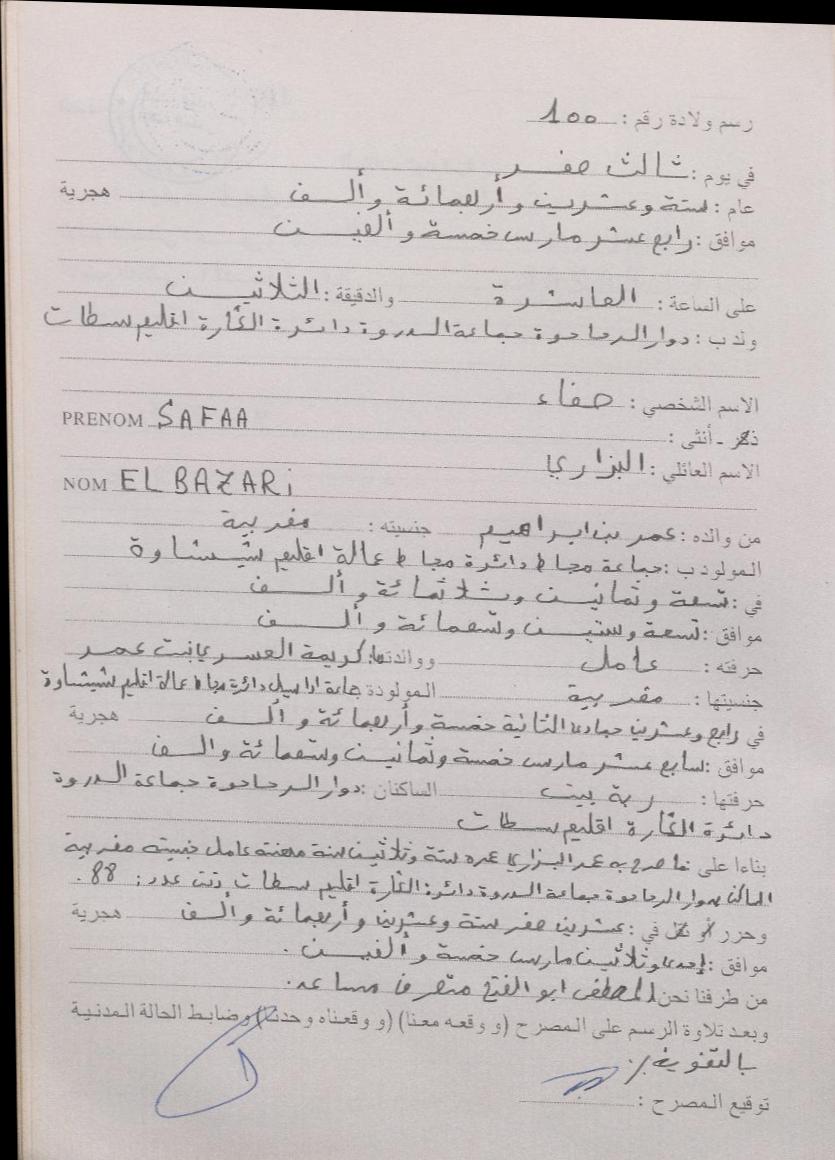 رسم ولادة رقم : 100
في يوم : ثالث صفر
عام : ستة وعشرين وأربعمائة وألف هجرية
موافق : رابع عشر مارس خمسة وألفين
على الساعة : العاشرة والدقيقة : الثلاثين
ولد ب : دوار الرحاحوة جماعة الدروة دائرة الگارة اقليم سطات
الاسم الشخصي : صفاء
ذكر - أنثى :
PRENOM SAFAA
الاسم العائلي : البزاري
NOM EL BAZARi
من والده : عمر بن ابراهيم جنسيته : مغربية
المولود ب : جماعة مجاط دائرة مجاط عمالة اقليم شيشاوة
في : تسعة وثمانين وثلاثمائة وألف
موافق : تسعة وستين وتسعمائة وألف
حرفته : عامل ووالدتها : كريمة العسري بنت عمر
جنسيتها : مغربية المولودة جماعة دائرة مجاط عمالة اقليم شيشاوة
في رابع وعشرين جمادى الثانية خمسة وأربعمائة وألف هجرية
موافق : سابع عشر مارس خمسة وثمانين وتسعمائة والف
حرفتها : ربة بيت الساكنان : دوار الرحاحوة جماعة الدروة
دائرة الگارة اقليم سطات
بناءا على ما صرح به عمر البزاري عمره ستة وثلاثين سنة مهنته عامل جنسيته مغربية
الساكن بدوار الرحاحوة جماعة الدروة دائرة الگارة اقليم سطات عدد : 88 .
وحرر أو نقل في : عشرين صفر ستة وعشرين وأربعمائة والف هجرية
موافق : إحدى وثلاثين مارس خمسة وألفين .
من طرفنا نحن المصطفى ابو الفتح متصرف مساعد .
وبعد تلاوة الرسم على المصرح (و وقعه معنا) (و وقعناه وحدنا) وضابط الحالة المدنية
بالتفويض ./.
توقيع المصرح :